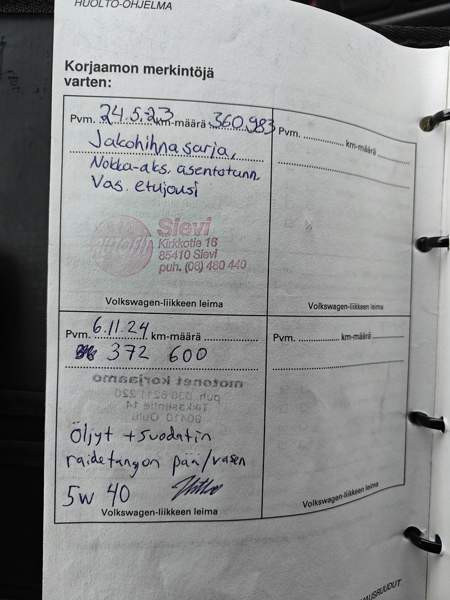 HUOLTO-OHJELMA
Korjaamon merkintöjä
varten:
Pvm. 24.5.23 km-määrä 360.983
Jakohihnasarja,
Nokka-aks. asentotunn.
Vas. etujousi
Sievi
Kirkkotie 16
85410 Sievi
puh. (08) 480 440
Volkswagen-liikkeen leima
Pvm. km-määrä
Volkswagen-liikkeen leima
Pvm. 6.11.24 km-määrä
372 600
motonet korjaamo
90410 Oulu
Öljyt + suodatin
raidetangon pää/vasen
5w 40
Volkswagen-liikkeen leima
Pvm. km-määrä
Volkswagen-liikkeen leima